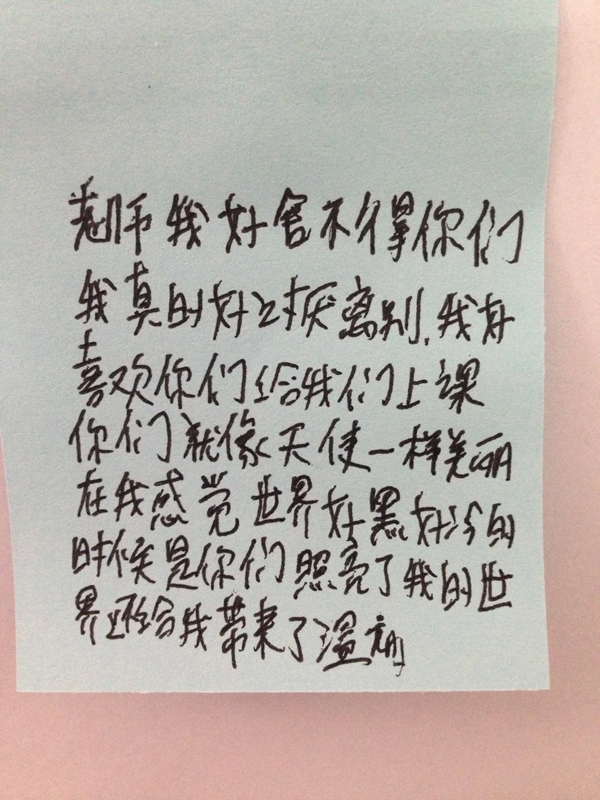 师我好舍不得你们
我真的好讨厌离别,我好
喜欢你们给我们上课
你们就像天使一样美丽
在我感觉世界好黑好冷的
时候是你们照亮了我的世
界还给我带来了温